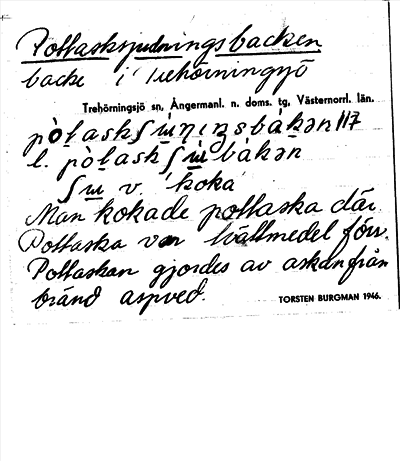 Pottasksjudningsbacken
backe i Trehörningsjö
Trehörningsjö sn, Ångermanl. n. doms. tg, Västernorrl. län.
l.
v. 'koka'
Man kokade pottaska där.
Pottaska var tvättmedel förr.
Pottaskan gjordes av askan från
bränd aspved.
TORSTEN BURGMAN 1946.